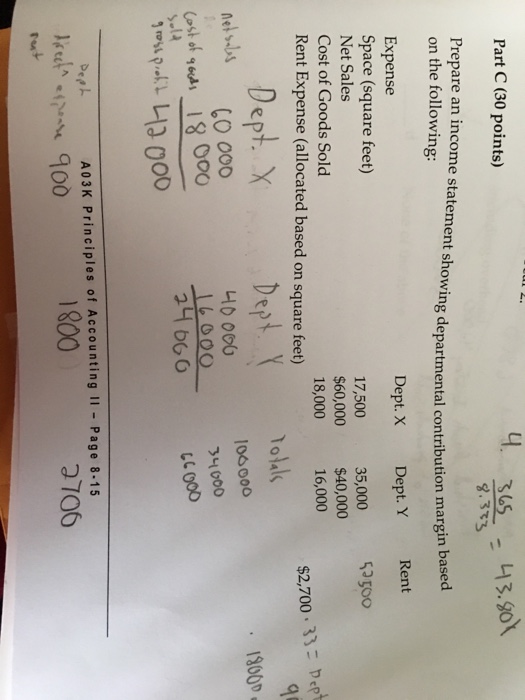 4. 365 / 8.333 = 43.80x
Part C (30 points)
Prepare an income statement showing departmental contribution margin based
on the following:
Expense Dept. X Dept. Y Rent
Space (square feet) 17,500 35,000 52500
Net Sales $60,000 $40,000
Cost of Goods Sold 18,000 16,000
Rent Expense (allocated based on square feet) $2,700 .33 = Dept
Dept. X Dept. Y Totals
net sales 60 000 40 000 100000
Cost of goods sold 18 000 16 000 34000
gross profit 42 000 24 000 66000
A03K Principles of Accounting II – Page 8-15
Dept
direct expense 900 1800 2700
rent